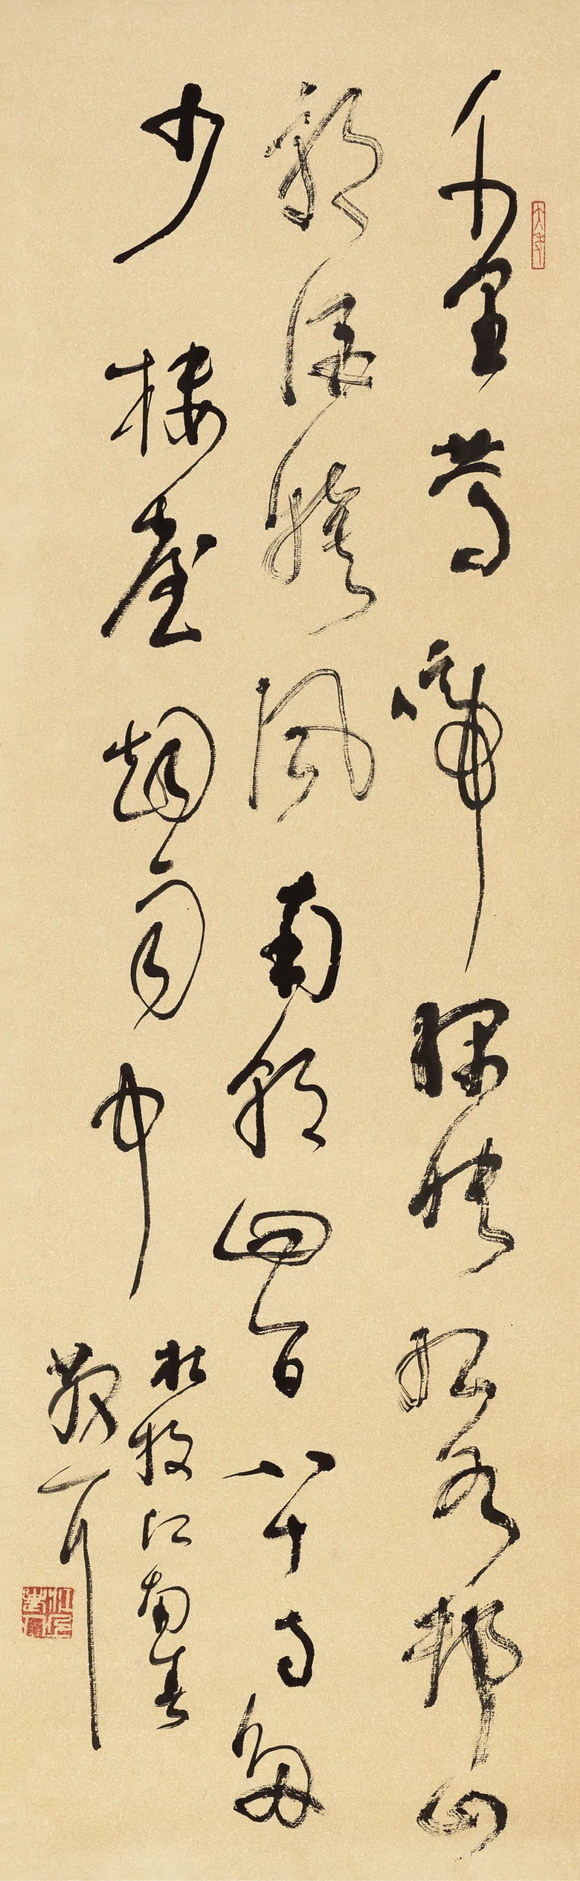 千里莺啼绿映红水邨山
郭酒旗风南朝四百八十寺多
少楼台烟雨中
杜牧江南春